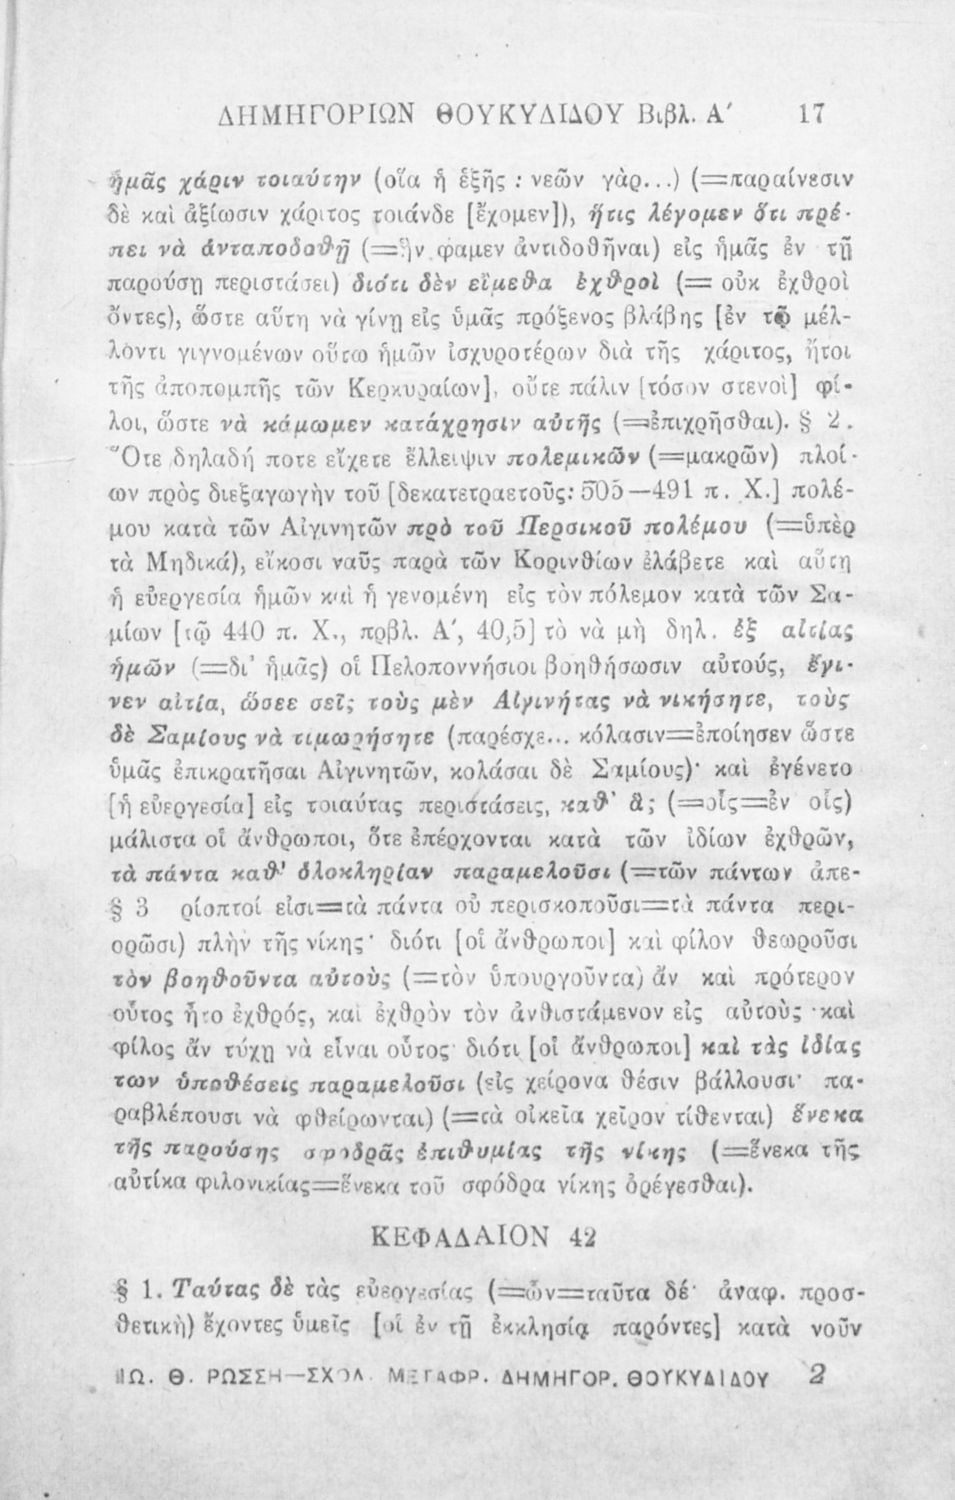 ΔΗΜΗΓΟΡΙΩΝ ΘΟΥΚΥΔΙΔΟΥ Βιβλ. Α΄ 17
ἡμᾶς χάριν τοιαύτην (οἵα ἡ ἑξῆς : νεῶν γὰρ...) (=παραίνεσιν
δὲ καὶ ἀξίωσιν χάριτος τοιάνδε [ἔχομεν]), ἥτις λέγομεν ὅτι πρέ-
πει νὰ ἀνταποδοθῇ (=ἣν φαμεν ἀντιδοθῆναι) εἰς ἡμᾶς ἐν τῇ
παρούσῃ περιστάσει) διότι δὲν εἴμεθα ἐχθροὶ (= οὐκ ἐχθροὶ
ὄντες), ὥστε αὕτη νὰ γίνῃ εἰς ὑμᾶς πρόξενος βλάβης [ἐν τῷ μέλ-
λοντι γιγνομένων οὕτω ἡμῶν ἰσχυροτέρων διὰ τῆς χάριτος, ἤτοι
τῆς ἀποπομπῆς τῶν Κερκυραίων], οὔτε πάλιν [τόσον στενοὶ] φί-
λοι, ὥστε νὰ κάμωμεν κατάχρησιν αὐτῆς (=ἐπιχρῆσθαι). § 2.
Ὅτε δηλαδή ποτε εἴχετε ἔλλειψιν πολεμικῶν (=μακρῶν) πλοί-
ων πρὸς διεξαγωγὴν τοῦ [δεκατετραετοῦς: 505—491 π. Χ.] πολέ-
μου κατὰ τῶν Αἰγινητῶν πρὸ τοῦ Περσικοῦ πολέμου (=ὑπὲρ
τὰ Μηδικά), εἴκοσι ναῦς παρὰ τῶν Κορινθίων ἐλάβετε καὶ αὕτη
ἡ εὐεργεσία ἡμῶν καὶ ἡ γενομένη εἰς τὸν πόλεμον κατὰ τῶν Σα-
μίων [τῷ 440 π. Χ., πρβλ. Α΄, 40,5] τὸ νὰ μὴ δηλ. ἐξ αἰτίας
ἡμῶν (=δι' ἡμᾶς) οἱ Πελοποννήσιοι βοηθήσωσιν αὐτούς, ἔγι-
νεν αἰτία, ὥσεε σεῖς τοὺς μὲν Αἰγινήτας νὰ νικήσητε, τοὺς
δὲ Σαμίους νὰ τιμωρήσητε (παρέσχε... κόλασιν=ἐποίησεν ὥστε
ὑμᾶς ἐπικρατῆσαι Αἰγινητῶν, κολάσαι δὲ Σαμίους)· καὶ ἐγένετο
[ἡ εὐεργεσία] εἰς τοιαύτας περιστάσεις, καθ' ἃς (=οἷς=ἐν οἷς)
μάλιστα οἱ ἄνθρωποι, ὅτε ἐπέρχονται κατὰ τῶν ἰδίων ἐχθρῶν,
τὰ πάντα καθ' ὁλοκληρίαν παραμελοῦσι (=τῶν πάντων ἀπε-
§ 3 ρίοπτοί εἰσι=τὰ πάντα οὐ περισκοποῦσι=τὰ πάντα περι-
ορῶσι) πλὴν τῆς νίκης· διότι [οἱ ἄνθρωποι] καὶ φίλον θεωροῦσι
τὸν βοηθοῦντα αὐτοὺς (=τὸν ὑπουργοῦντα) ἂν καὶ πρότερον
οὗτος ἦτο ἐχθρός, καὶ ἐχθρὸν τὸν ἀνθιστάμενον εἰς αὐτοὺς καὶ
φίλος ἂν τύχῃ νὰ εἶναι οὗτος· διότι [οἱ ἄνθρωποι] καὶ τὰς ἰδίας
των ὑποθέσεις παραμελοῦσι (εἰς χείρονα θέσιν βάλλουσι· πα-
ραβλέπουσι νὰ φθείρωνται) (=τὰ οἰκεῖα χεῖρον τίθενται) ἕνεκα
τῆς παρούσης σφοδρᾶς ἐπιθυμίας τῆς νίκης (=ἕνεκα τῆς
αὐτίκα φιλονικίας=ἕνεκα τοῦ σφόδρα νίκης ὀρέγεσθαι).
ΚΕΦΑΛΑΙΟΝ 42
§ 1. Ταύτας δὲ τὰς εὐεργεσίας (=ὧν=ταῦτα δέ· ἀναφ. προσ-
θετικὴ) ἔχοντες ὑμεῖς [οἱ ἐν τῇ ἐκκλησίᾳ παρόντες] κατὰ νοῦν
ΙΩ. Θ. ΡΩΣΣΗ—ΣΧΟΛ. ΜΕΤΑΦΡ. ΔΗΜΗΓΟΡ. ΘΟΥΚΥΔΙΔΟΥ 2